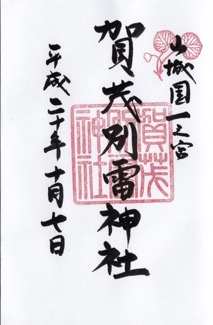 山城国一之宮
賀茂別雷神社
平成二十年十月七日
賀茂別雷神社